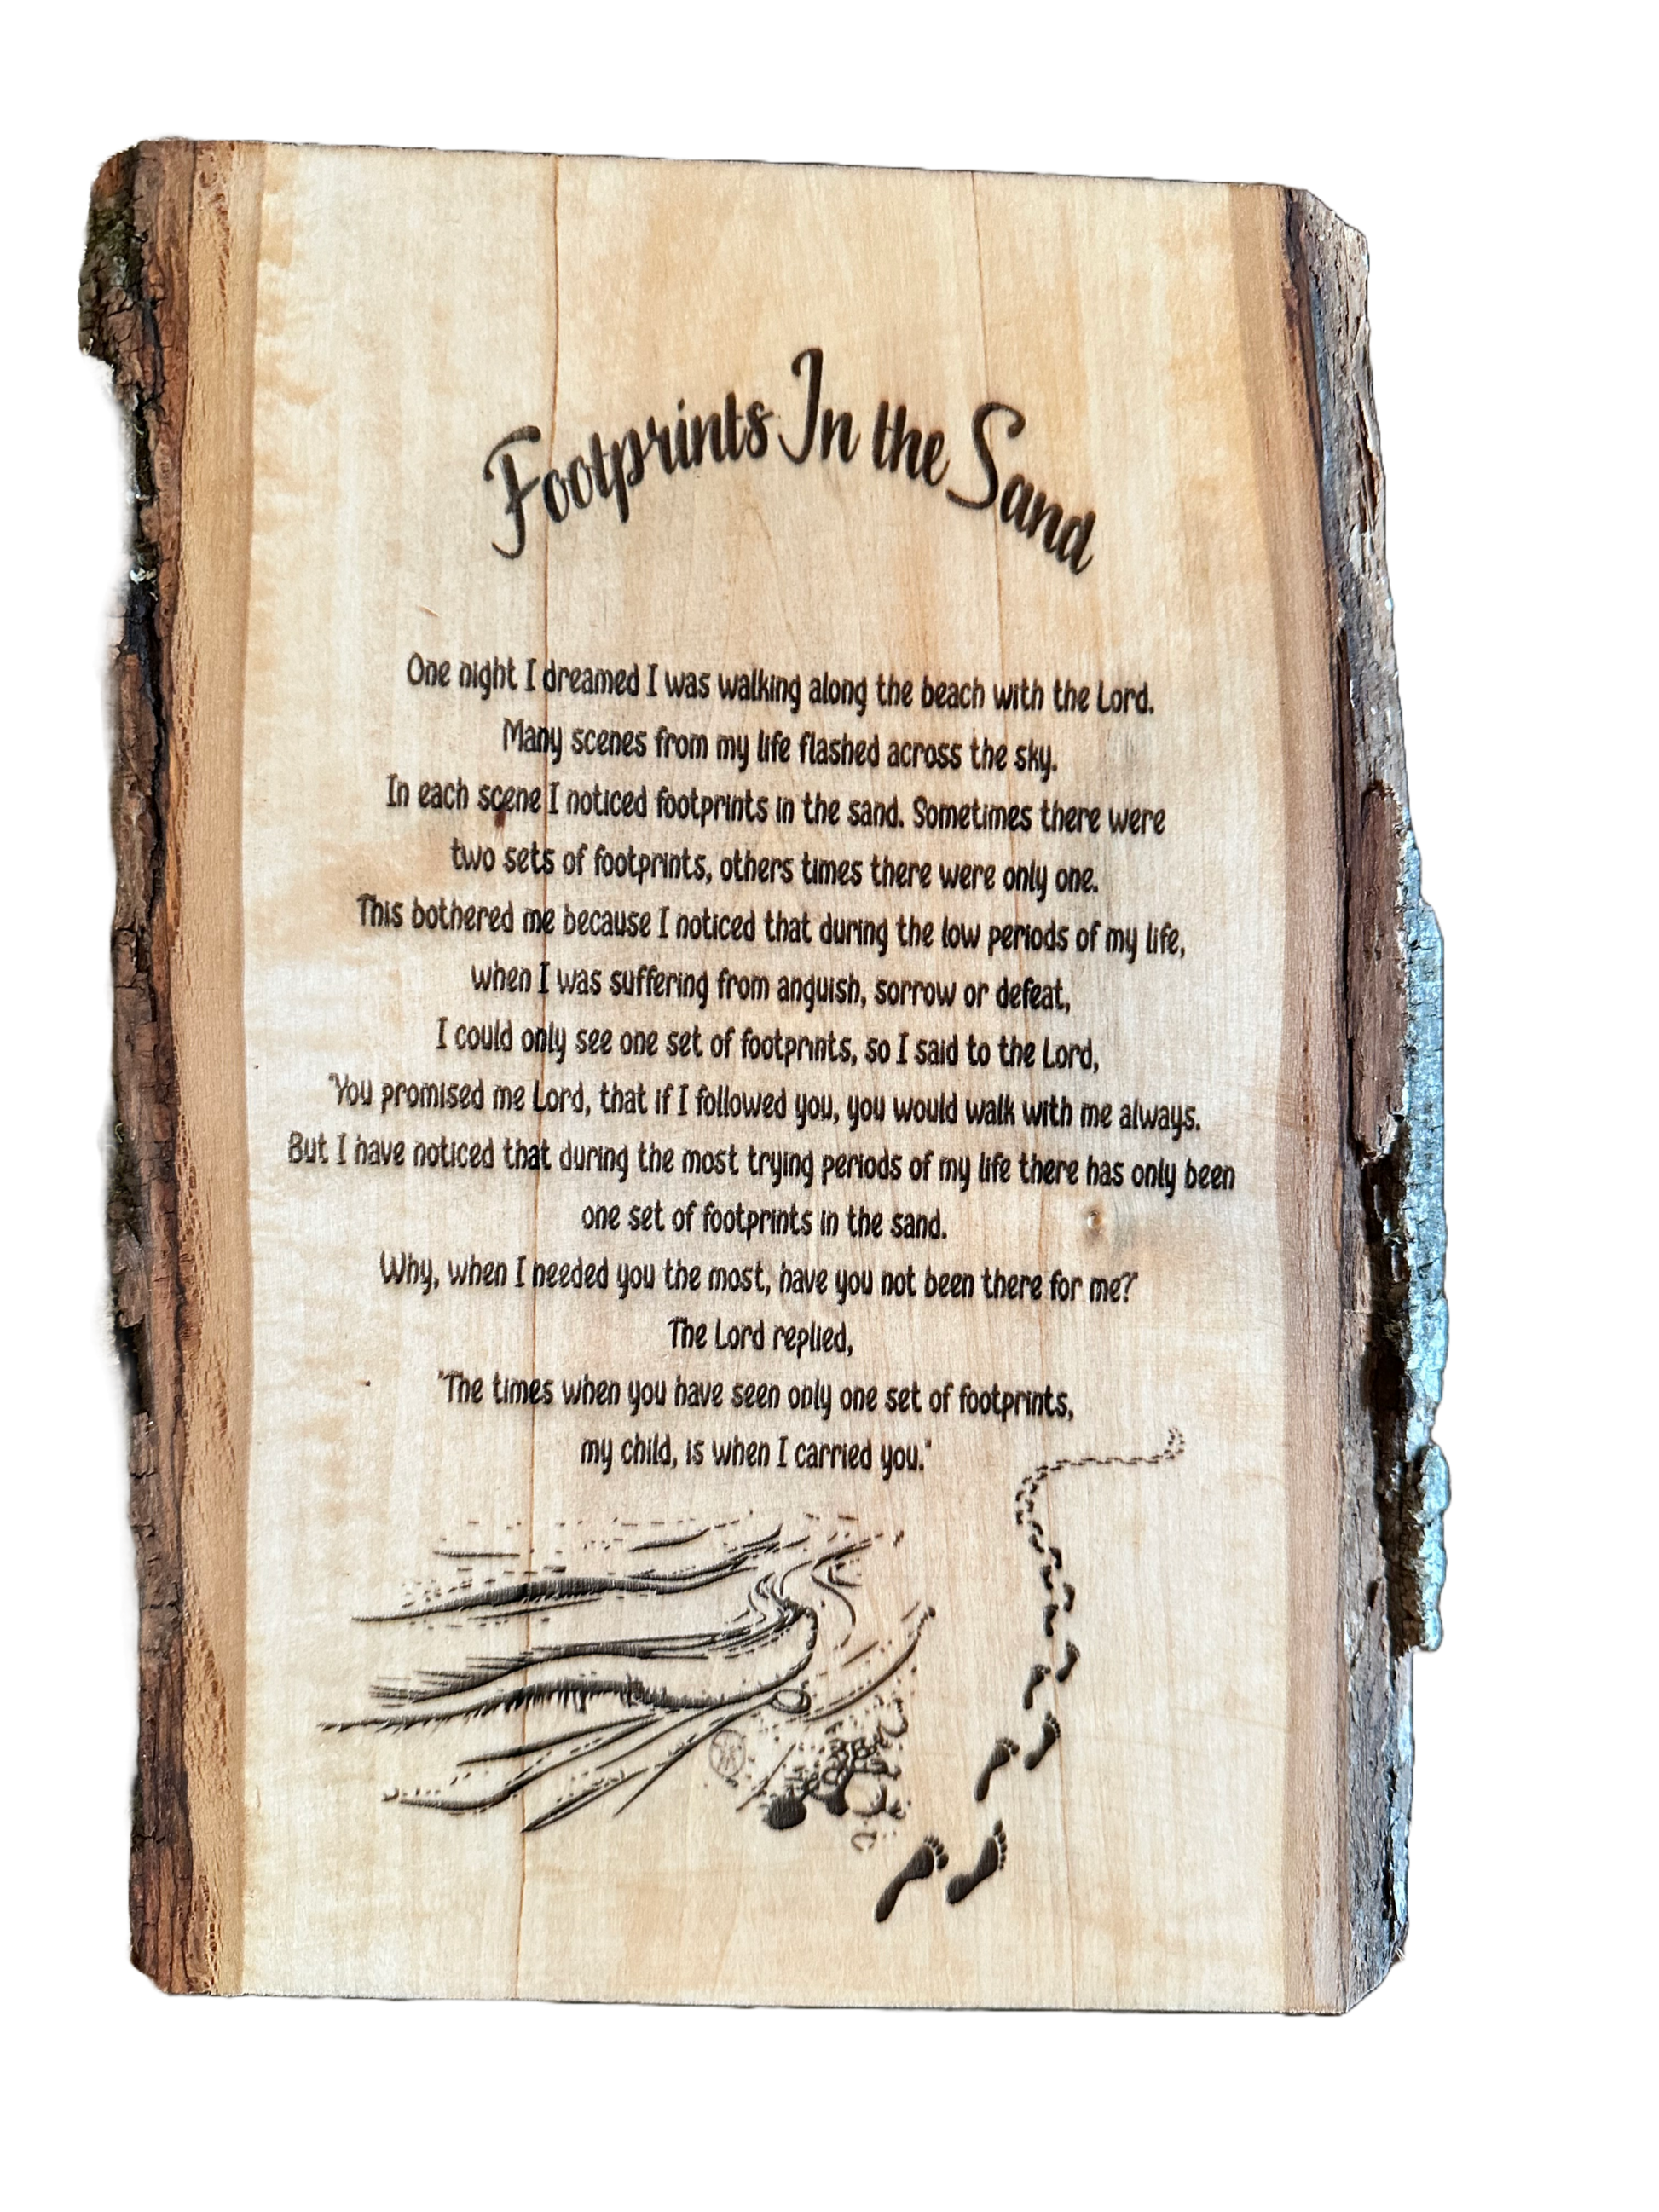 Footprints In the Sand
One night I dreamed I was walking along the beach with the Lord.
Many scenes from my life flashed across the sky.
In each scene I noticed footprints in the sand. Sometimes there were
two sets of footprints, others times there were only one.
This bothered me because I noticed that during the low periods of my life,
when I was suffering from anguish, sorrow or defeat,
I could only see one set of footprints, so I said to the Lord,
"You promised me Lord, that if I followed you, you would walk with me always.
But I have noticed that during the most trying periods of my life there has only been
one set of footprints in the sand.
Why, when I needed you the most, have you not been there for me?"
The Lord replied,
"The times when you have seen only one set of footprints,
my child, is when I carried you."